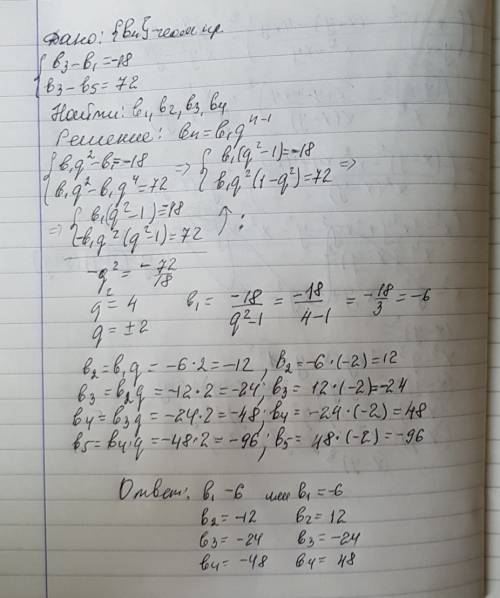 Дано: {bn} - геом. пр.
{ b3 - b1 = -18
{ b3 - b5 = 72
Найти: b1, b2, b3, b4
Решение: bn = b1q^(n-1)
{ b1q² - b1 = -18 => { b1(q² - 1) = -18 =>
{ b1q² - b1q⁴ = 72 { b1q²(1 - q²) = 72
=> { b1(q² - 1) = 18 ↑ :
{ -b1q²(q² - 1) = 72
-q² = -72/18
q² = 4 b1 = -18/(q² - 1) = -18/(4 - 1) = -18/3 = -6
q = ±2
b2 = b1q = -6·2 = -12 ; b2 = -6·(-2) = 12
b3 = b2q = -12·2 = -24 ; b3 = 12·(-2) = -24
b4 = b3q = -24·2 = -48 ; b4 = -24·(-2) = 48
b5 = b4·q = -48·2 = -96 ; b5 = 48·(-2) = -96
Ответ: b1 -6 или b1 = -6
b2 = -12 b2 = 12
b3 = -24 b3 = -24
b4 = -48 b4 = 48